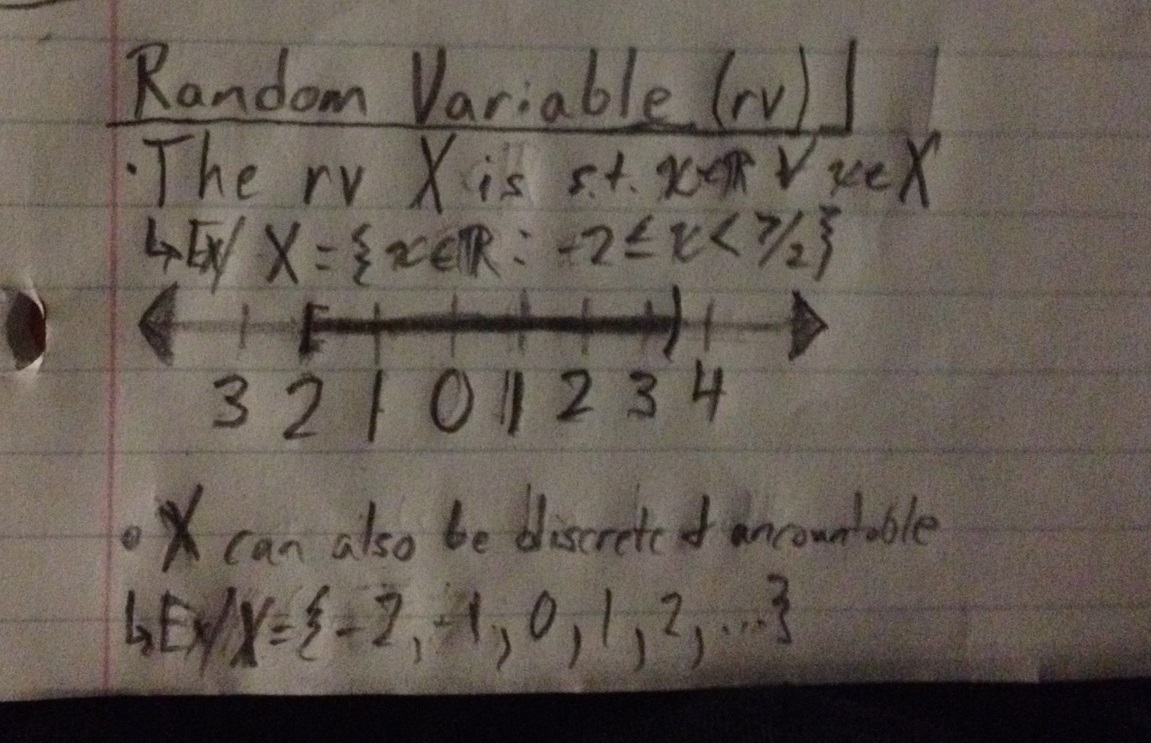 Random Variable (rv)
·The rv X is s.t. x∈ℝ ∀ x∈X
↳Ex/ X={x∈ℝ: -2≤x<7/2}
3 2 1 0 1 2 3 4
• X can also be discrete & uncountable
↳Ex/ X={-2, -1, 0, 1, 2, ...}